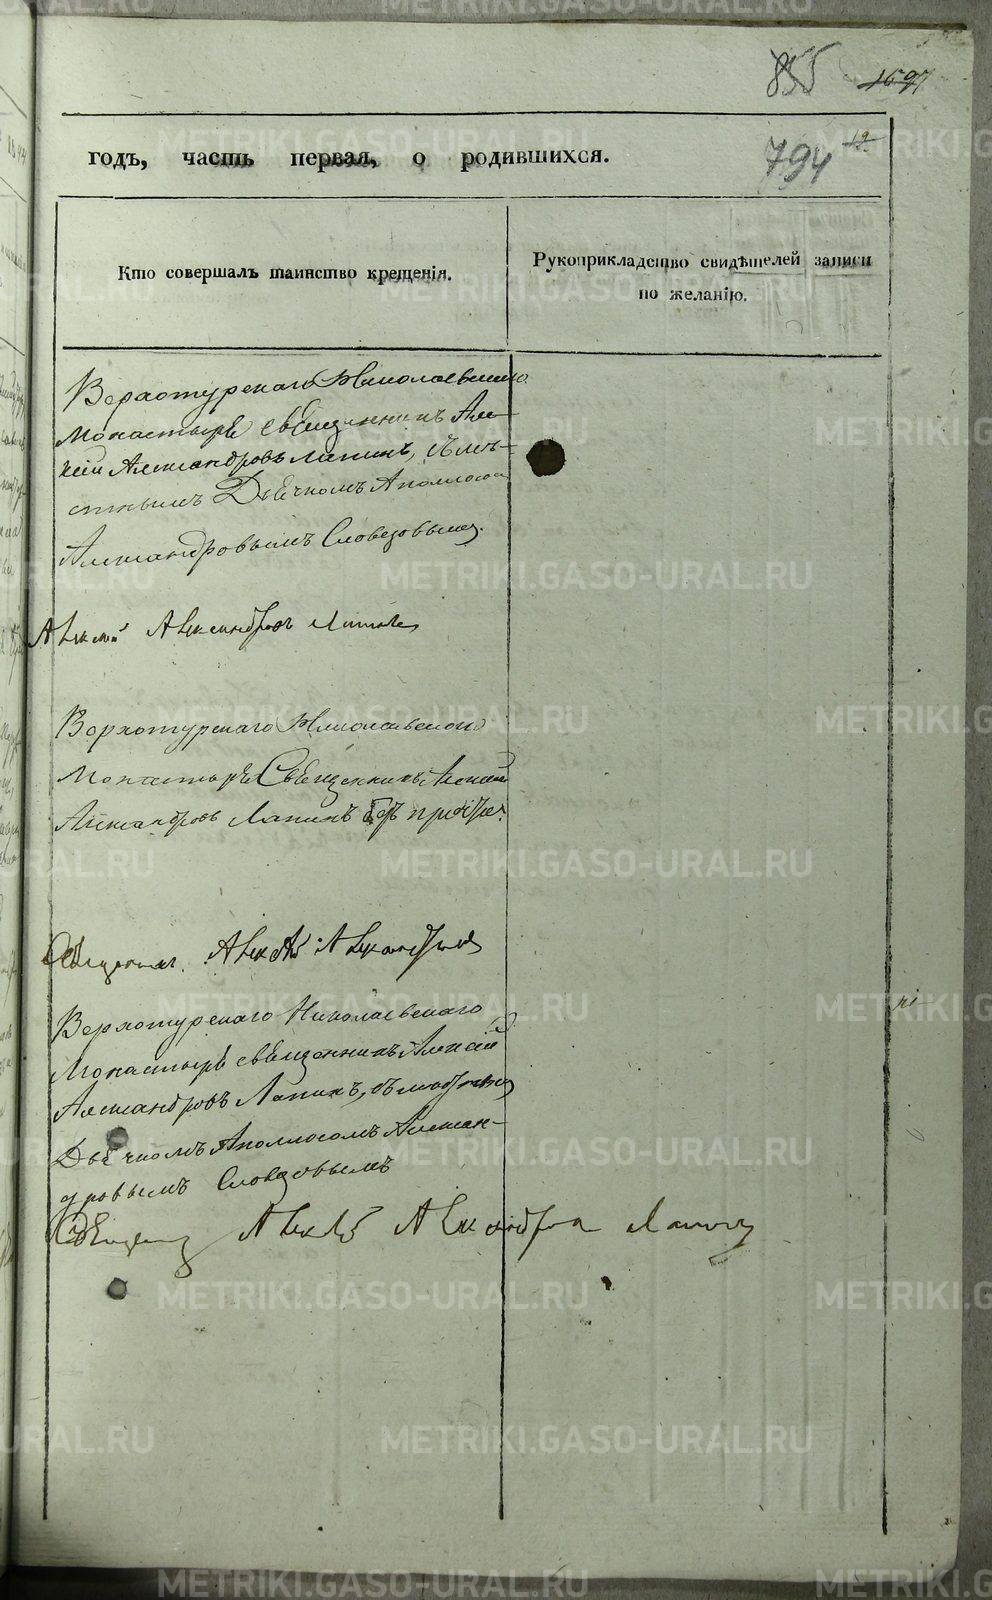 855 1597
годъ, часть первая, о родившихся. 794 12
Кто совершалъ таинство крещенія.
Рукоприкладство свидѣтелей записи
по желанію.
Верхотурскаго Николаевскаго
Монастыря священникъ Але-
ксій Александровъ Лапинъ, съ мѣ-
стнымъ Дьячкомъ Аполлосомъ
Александровымъ Словцовымъ.
Алексѣй Александровъ Лапинъ
Верхотурскаго Николаевскаго
Монастыря Священникъ Алексій
Александровъ Лапинъ безъ причта.
Священникъ Алексѣй Александровъ
Верхотурскаго Николаевскаго
Монастыря священникъ Алексій
Александровъ Лапинъ, съ мѣстнымъ
Дьячкомъ Аполлосомъ Алексан-
дровымъ Словцовымъ
Священникъ Алексѣй Александровъ Лапинъ
METRIKI.GASO-URAL.RU